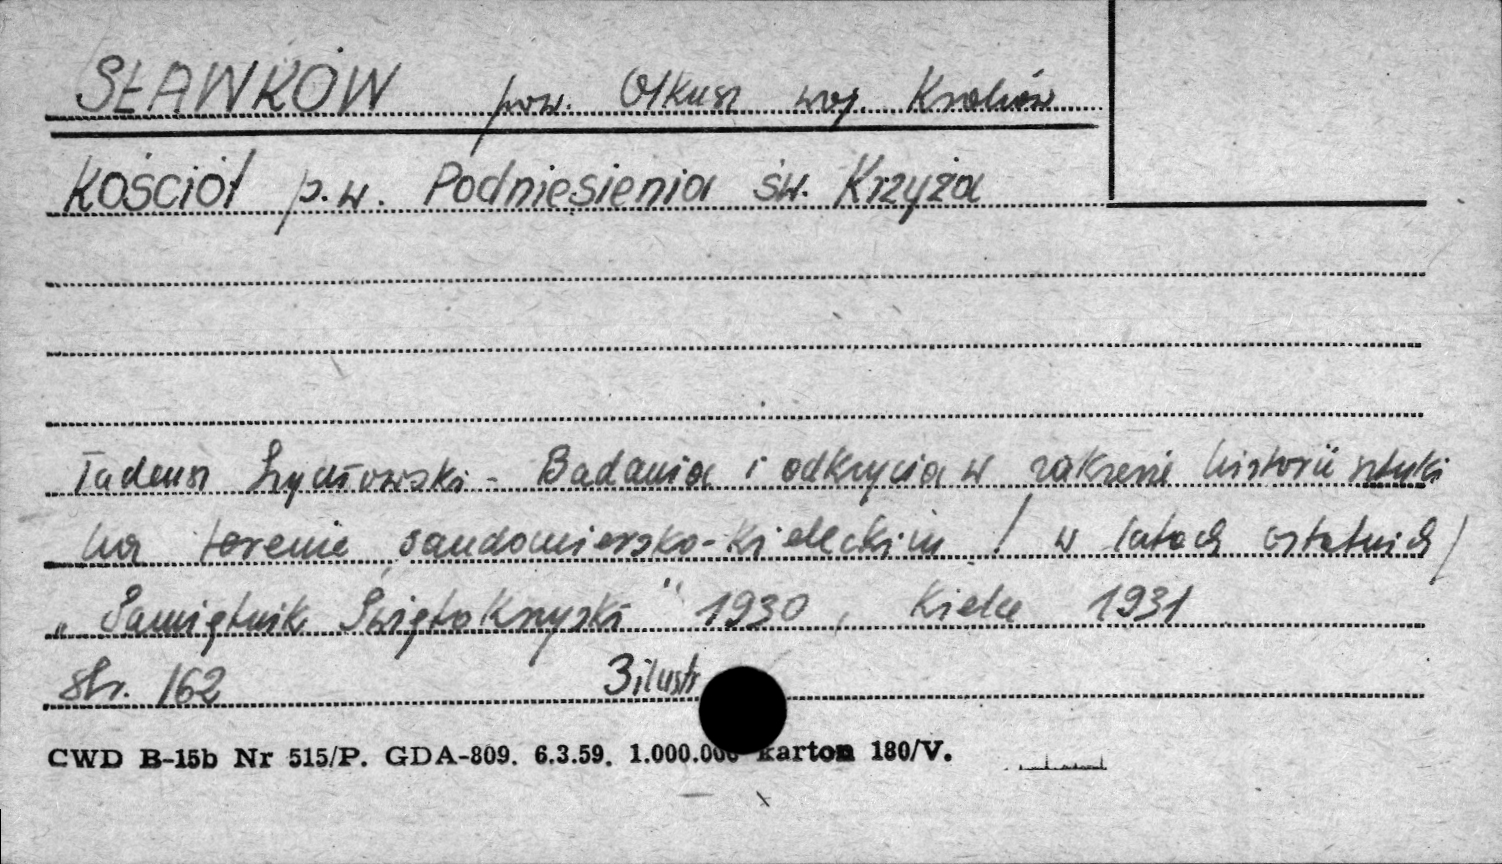 SŁAWKÓW pow. Olkusz woj. Kraków
Kościół p.w. Podniesienia św. Krzyża
Tadeusz Szydłowski - Badania i odkrycia w zakresie historii sztuki
na terenie sandomiersko-kieleckim / w latach ostatnich /
„Pamiętnik Świętokrzyski" 1930, Kielce 1931
str. 162 3 ilustr
CWD B-15b Nr 515/P. GDA-809. 6.3.59. 1.000.000 karton 180/V.